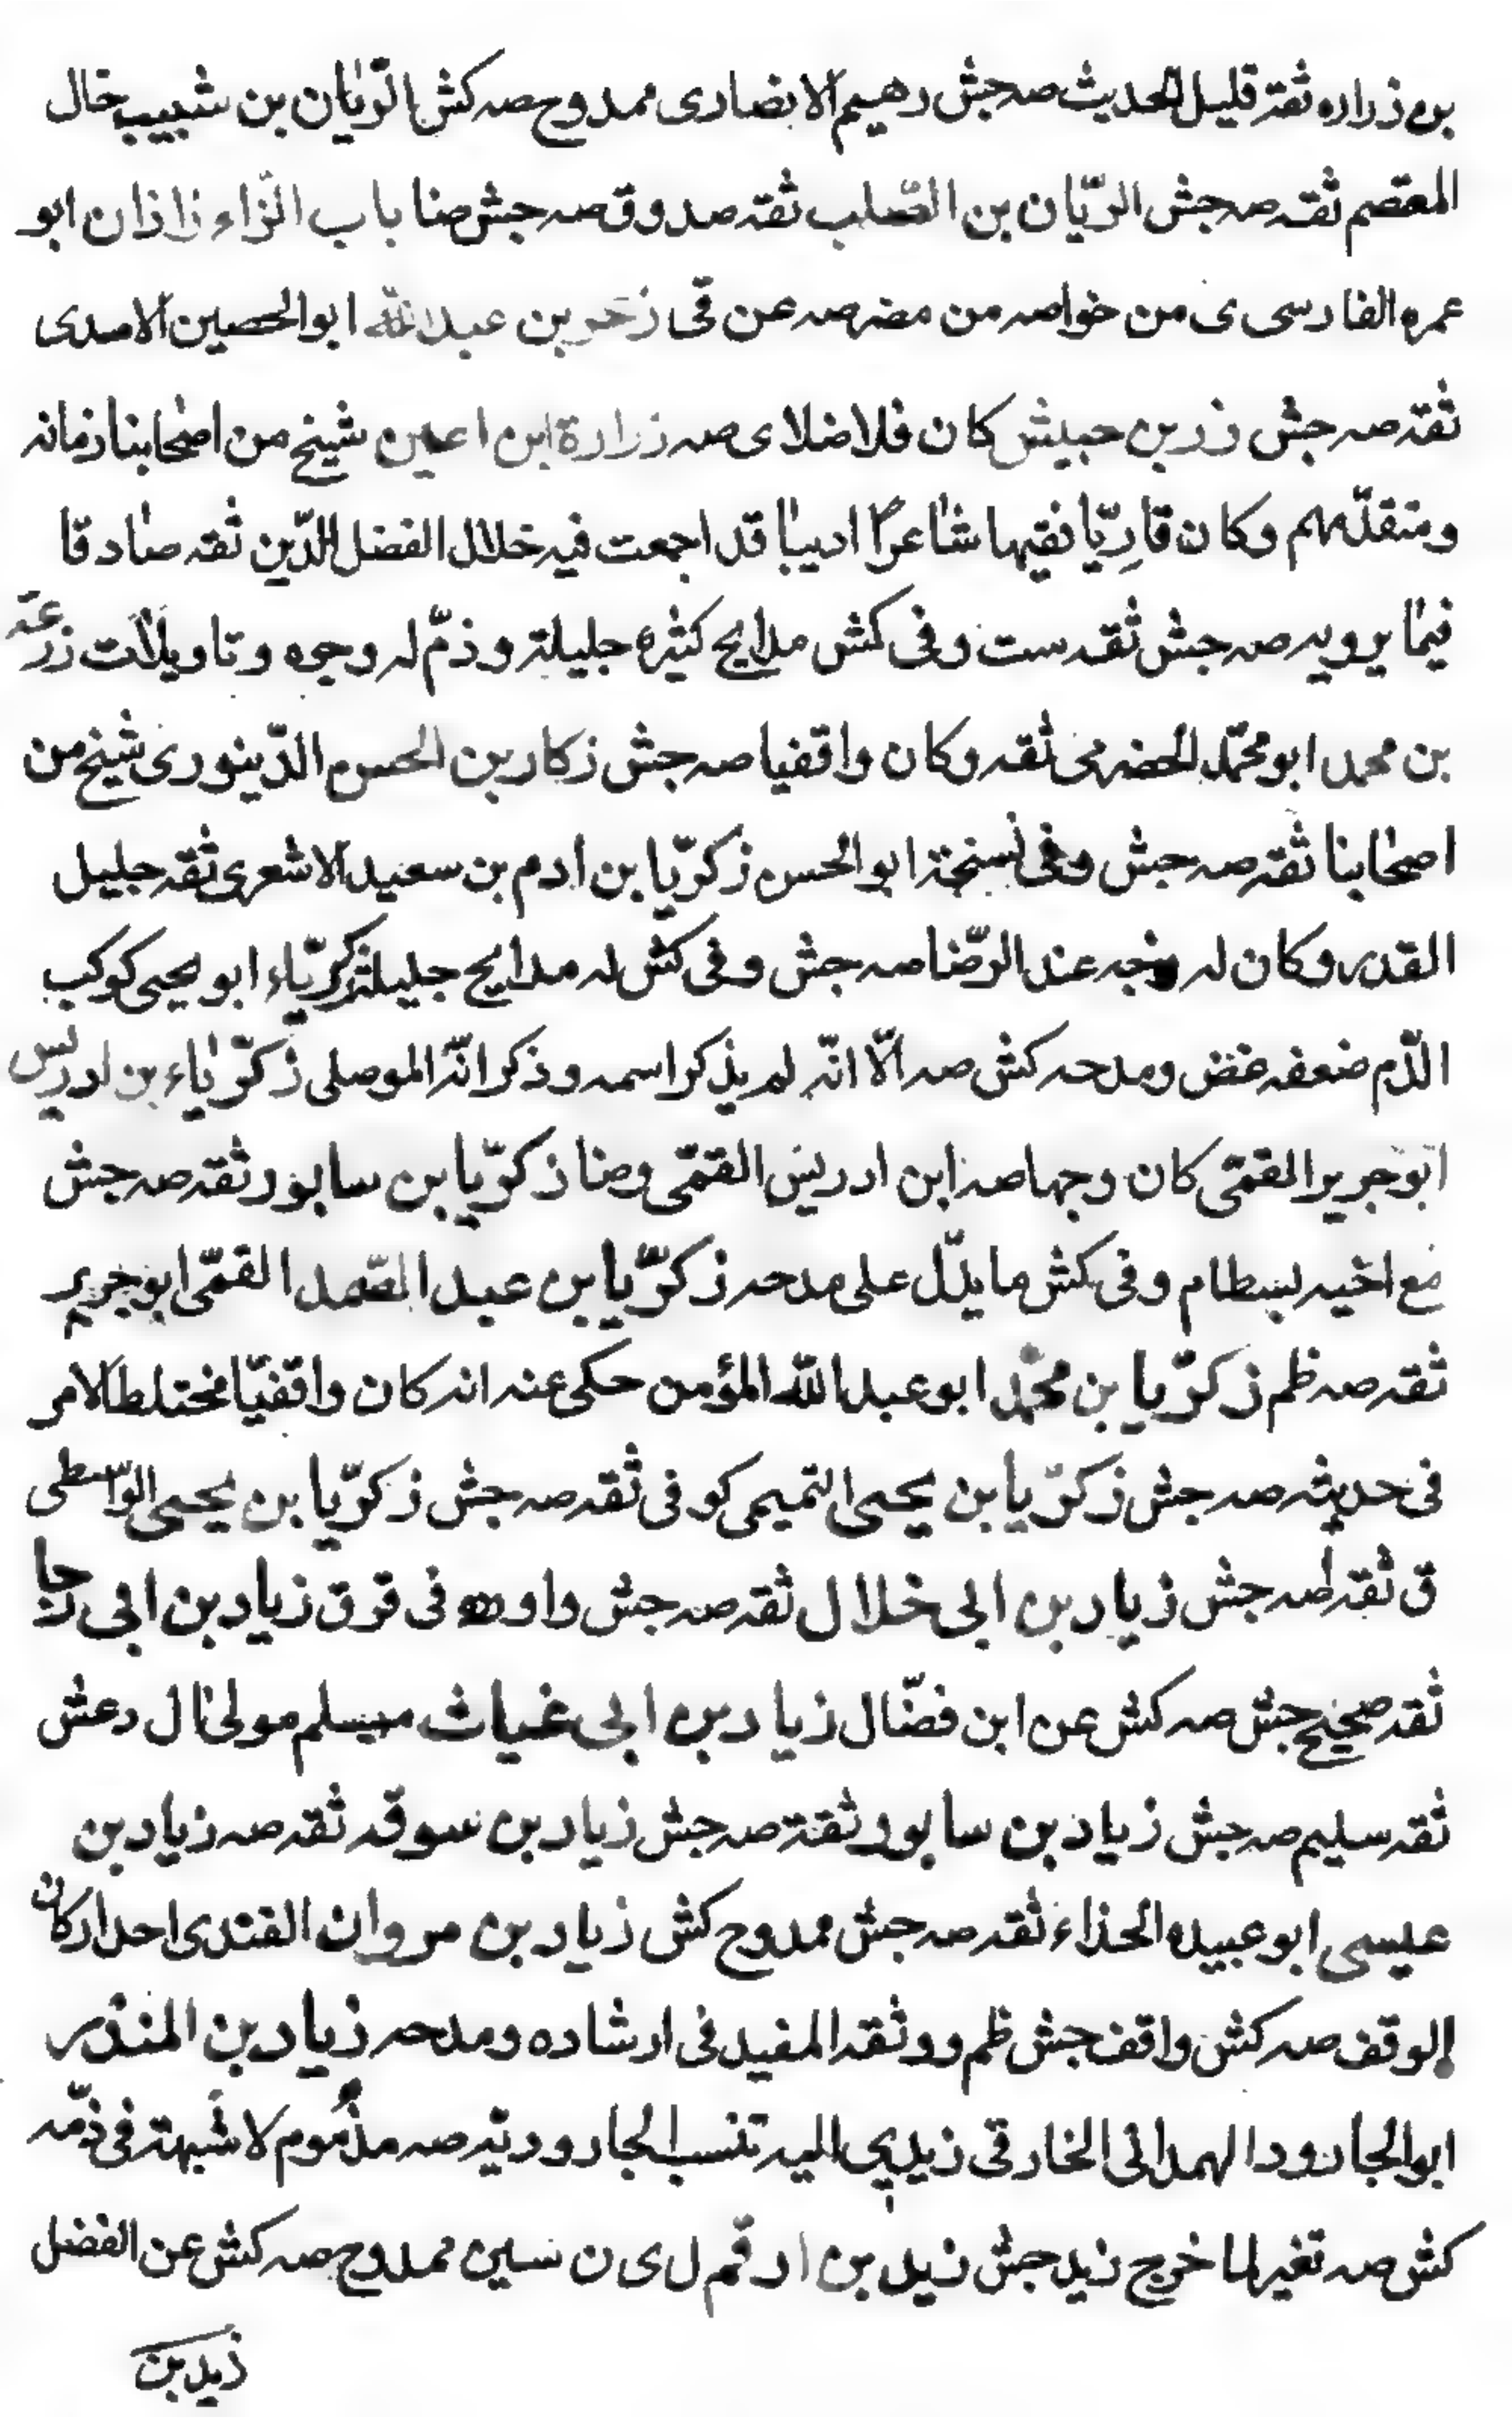 بن زراره ثقة قليل الحديث صه جش رهيم الانصاری ممدوح صه كش الرّيّان بن شبيب خال
المعتصم ثقه صه جش الريّان بن الصّلب ثقه صدوق صه جش ضا باب الزّاء زاذان ابو
عمره الفارسی ی من خواصه من مضر صه عن قی زحر بن عبدالله ابوالحصين الاسدی
ثقه صه جش زر بن حبيش كان فلاضلا ی صه زرارة ابن اعين شيخ من اصحابنا زمانه
ومتقدّمهم وكان قارِيّا فقيها شاعرًا اديبا قد اجمعت فيه خلال الفضل الدّين ثقه صادقا
فيما يرويه صه جش ثقه ست وفی كش مدايح كثيره جليلة وذمّ له وجوه وتاويلات زرعة
بن محمد ابو محمّد الحضرمی ثقه وكان واقفيا صه جش زكار بن الحسن الدّينوری شيخ من
اصحابنا ثقه صه جش وفی نسخة ابو الحسن زكرّيا بن ادم بن سعيد الاشعری ثقه جليل
القدر وكان له وجه عند الرّضا صه جش وفی كش له مدايح جليلة زكريّاء ابو يحيی كوكب
الدّم ضعفه غض ومدحه كش صه الّا انّه لم يذكر اسمه وذكر انّه الموصلی زكرّياء بن ادريس
ابو جرير القمّی كان وجها صه ابن ادريس القمّی وضا زكرّيا بن سابور ثقه صه جش
مع اخيه بسطام وفی كش ما يدّل علی مدحه زكرّيا بن عبد الصّمد القمّی ابو جرير
ثقه صه ظم زكرّيا بن محمّد ابو عبدالله المؤمن حكی عنه انه كان واقفيّا مختلط الامر
فی حديثه صه جش زكرّيا بن يحيی التميمی كوفی ثقه صه جش زكرّيا بن يحيی الواسطی
ق ثقه صه جش زياد بن ابی خلال ثقه صه جش واورده فی قر ق زياد بن ابی رجا
ثقه صحيح جش صه كش عن ابن فضّال زياد بن ابی غياث مسلم مولی ال دعش
ثقه سليم صه جش زياد بن سابور ثقة صه جش زياد بن سوقه ثقه صه زياد بن
عيسی ابو عبيده الحذاء ثقه صه جش ممدوح كش زياد بن مروان القندی احد اركان
الوقف صه كش واقف جش ظم ووثقه المفيد فی ارشاده ومدحه زياد بن المنذر
ابو الجارود الهمدانی الخارقی زيدی اليه تنسب الجاروديّه صه مذموم لا شبهة فی ذمّه
كش صه تغير لما خرج زيد جش زيد بن ارقم ل ی ن سين ممدوح صه كش عن الفضل
زيد بن